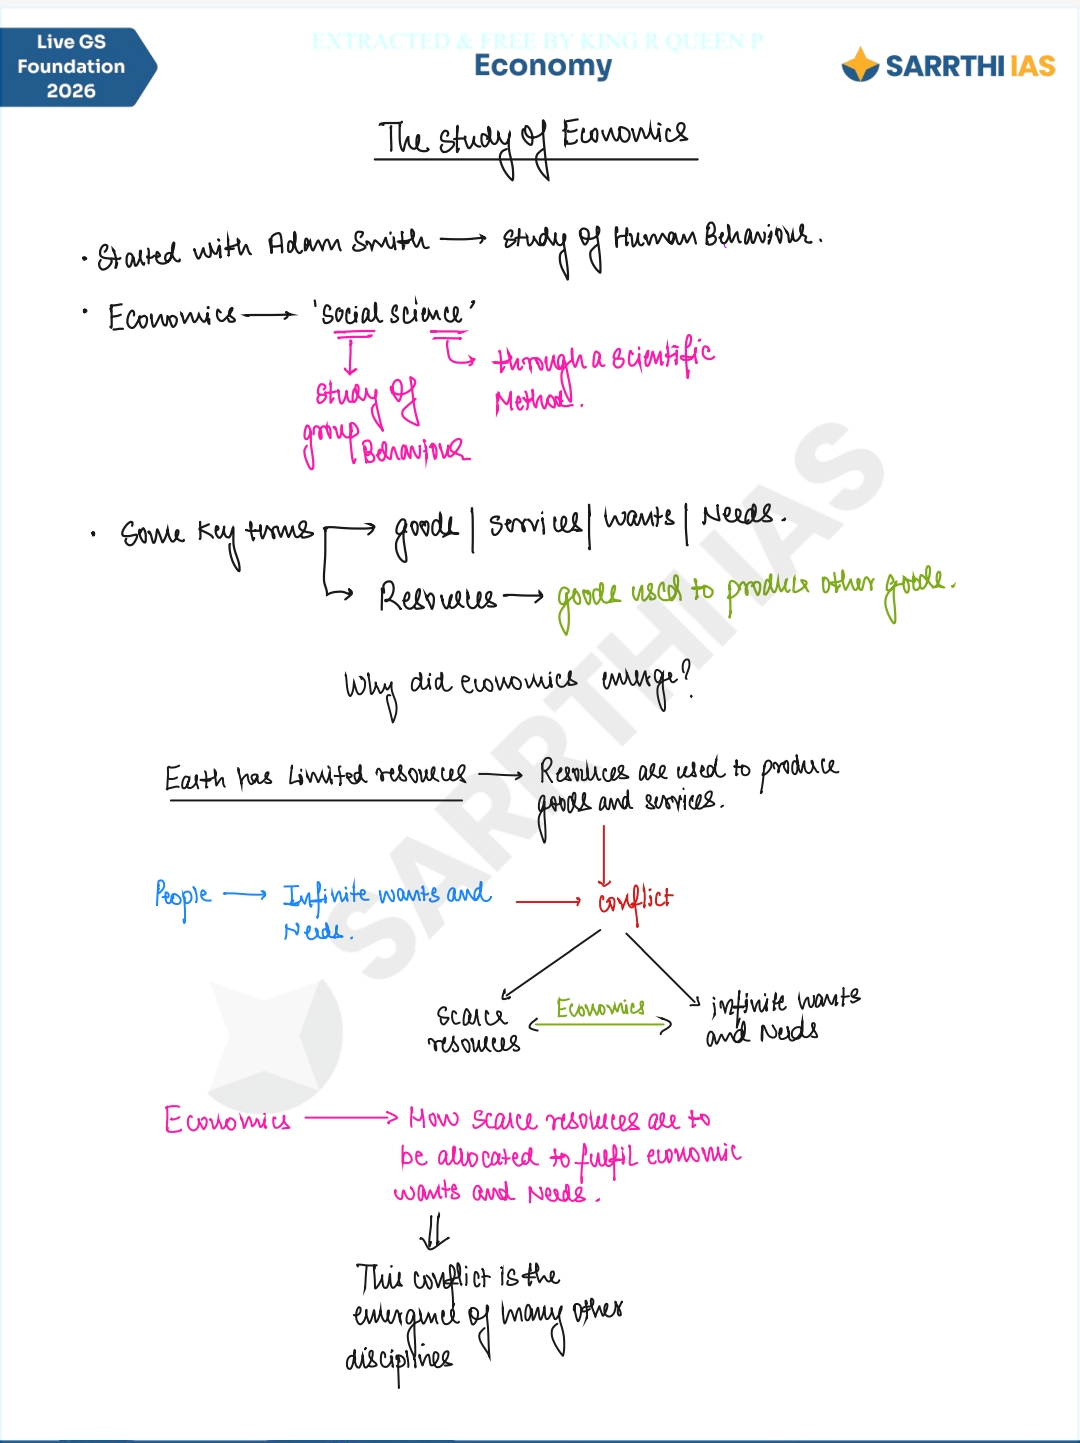 EXTRACTED & FREE BY KING R QUEEN P
Live GS
Foundation
2026
Economy
SARRTHI IAS
The study of Economics
• Started with Adam Smith → study of Human Behaviour.
• Economics → 'social science'
through a scientific
Method.
study of
group Behaviour
• Some key terms → goods | services | wants | Needs.
→ Resources → goods used to produce other goods.
Why did economics emerge?
Earth has limited resources → Resources are used to produce
goods and services.
People → Infinite wants and
Needs.
→ conflict
scarce
resources
Economics
infinite wants
and Needs
Economics → How scarce resources are to
be allocated to fulfil economic
wants and Needs.
This conflict is the
emergence of many other
disciplines
SARRTHI IAS